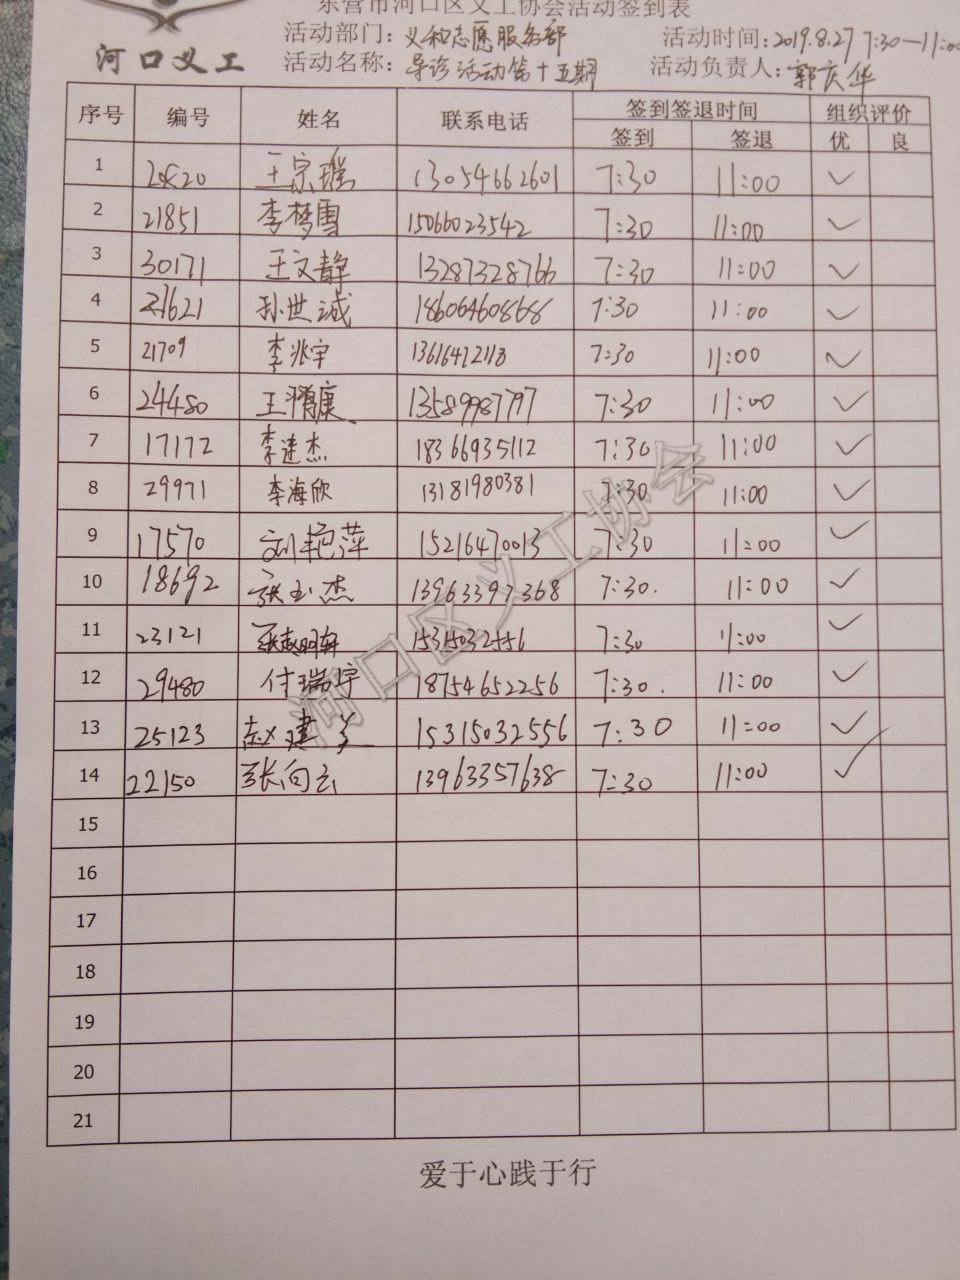 东营市河口区义工协会活动签到表
河口义工
活动部门：义和志愿服务部 活动时间：2019.8.27 7:30—11:00
活动名称：导诊活动第十五期 活动负责人：郭庆华
序号 编号 姓名 联系电话 签到签退时间 组织评价
签到 签退 优 良
1 20520 王宗瑶 13054662601 7:30 11:00 ✓
2 21851 李梦雪 15066023542 7:30 11:00 ✓
3 30171 王文静 13287328766 7:30 11:00 ✓
4 21621 孙世诚 18606460868 7:30 11:00 ✓
5 21709 李兆宇 13616472118 7:30 11:00 ✓
6 24480 王 康 13589987797 7:30 11:00 ✓
7 17172 李建杰 18366935112 7:30 11:00 ✓
8 29971 李海欣 13181980381 7:30 11:00 ✓
9 17570 刘艳萍 15216470013 7:30 11:00 ✓
10 18692 张玉杰 13963397368 7:30. 11:00 ✓
11 23121 张赵明轩 15315032556 7:30 11:00 ✓
12 29480 付瑞宇 18754652256 7:30. 11:00 ✓
13 25123 赵建美 15315032556 7:30 11:00 ✓
14 22150 张向云 13963357638 7:30 11:00 ✓
15
16
17
18
19
20
21
河口区义工协会
爱于心践于行